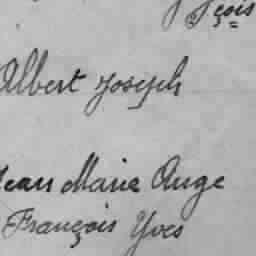 çois
Albert Joseph
Jean Marie Ange
François Yves